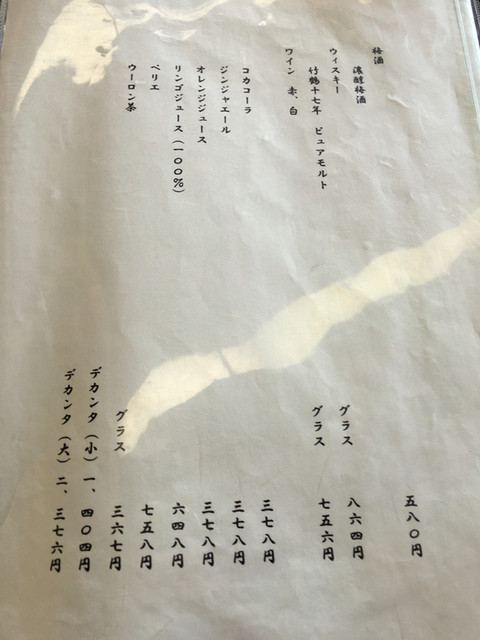 梅酒
濃醇梅酒 五八〇円
ウィスキー
竹鶴十七年 ピュアモルト グラス 八六四円
ワイン 赤、白 グラス 七五六円
コカコーラ 三七八円
ジンジャエール 三七八円
オレンジジュース 三七八円
リンゴジュース(一〇〇%) 六四八円
ペリエ 七五八円
ウーロン茶 グラス 三六七円
デカンタ(小) 一、四〇四円
デカンタ(大) 二、三七六円